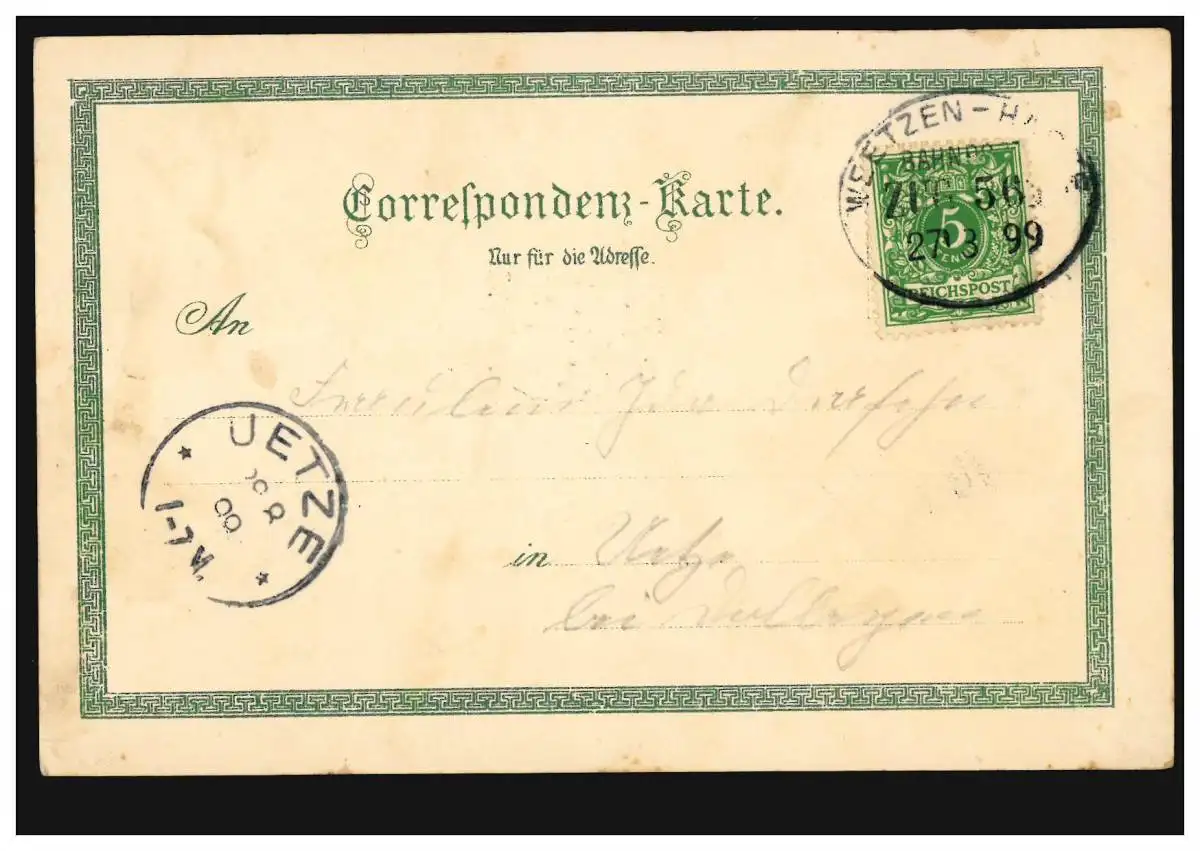 Correſpondenz-Karte.
Nur für die Adreſſe.
WEETZEN-
BAHNPO
ZUG 56
27 3 99
5
PFENNIG
REICHSPOST
An
Fräulein
UETZE
in Uetze
bei